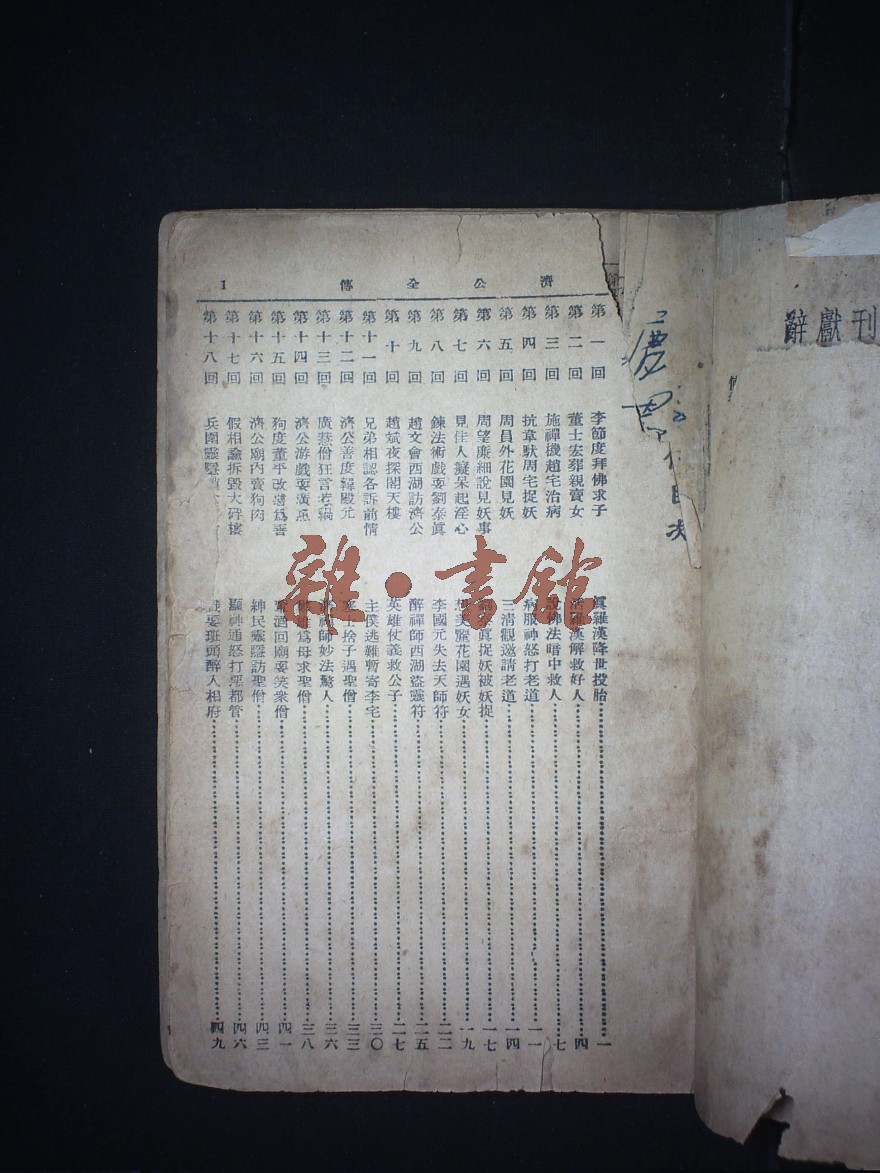 濟公全傳 1
目次
第一回 李節度拜佛求子 眞羅漢降世投胎 一
第二回 董士宏葬親賣女 活羅漢解救好人 四
第三回 施禪機趙宅治病 說佛法暗中救人 七
第四回 抗韋馱周宅捉妖 病服神怒打老道 一一
第五回 周員外花園見妖 三清觀邀請老道 一四
第六回 周望廉細說見妖事 劉泰眞捉妖被妖捉 一七
第七回 見佳人癡呆起淫心 想美麗花園遇妖女 一九
第八回 鍊法術戲耍劉泰眞 李國元失去天師符 二二
第九回 趙文會西湖訪濟公 醉禪師西湖盜靈符 二五
第十回 趙斌夜探閣天樓 英雄仗義救公子 二七
第十一回 兄弟相認各訴前情 主僕逃難暫寄李宅 三〇
第十二回 濟公善度韓殿元 寒士捨子遇聖僧 三三
第十三回 廣慧僧狂言惹禍 濟禪師妙法驚人 三六
第十四回 濟公游戲耍廣亮 爲母求聖僧 三八
第十五回 狗度董平改惡爲善 酒回廟耍笑衆僧 四一
第十六回 濟公廟內賣狗肉 紳民靈隱訪聖僧 四三
第十七回 假相諭拆毀大碑樓 顯神通怒打惡都管 四六
第十八回 兵圍靈隱 戲耍班頭醉入相府 四九
刊獻辭